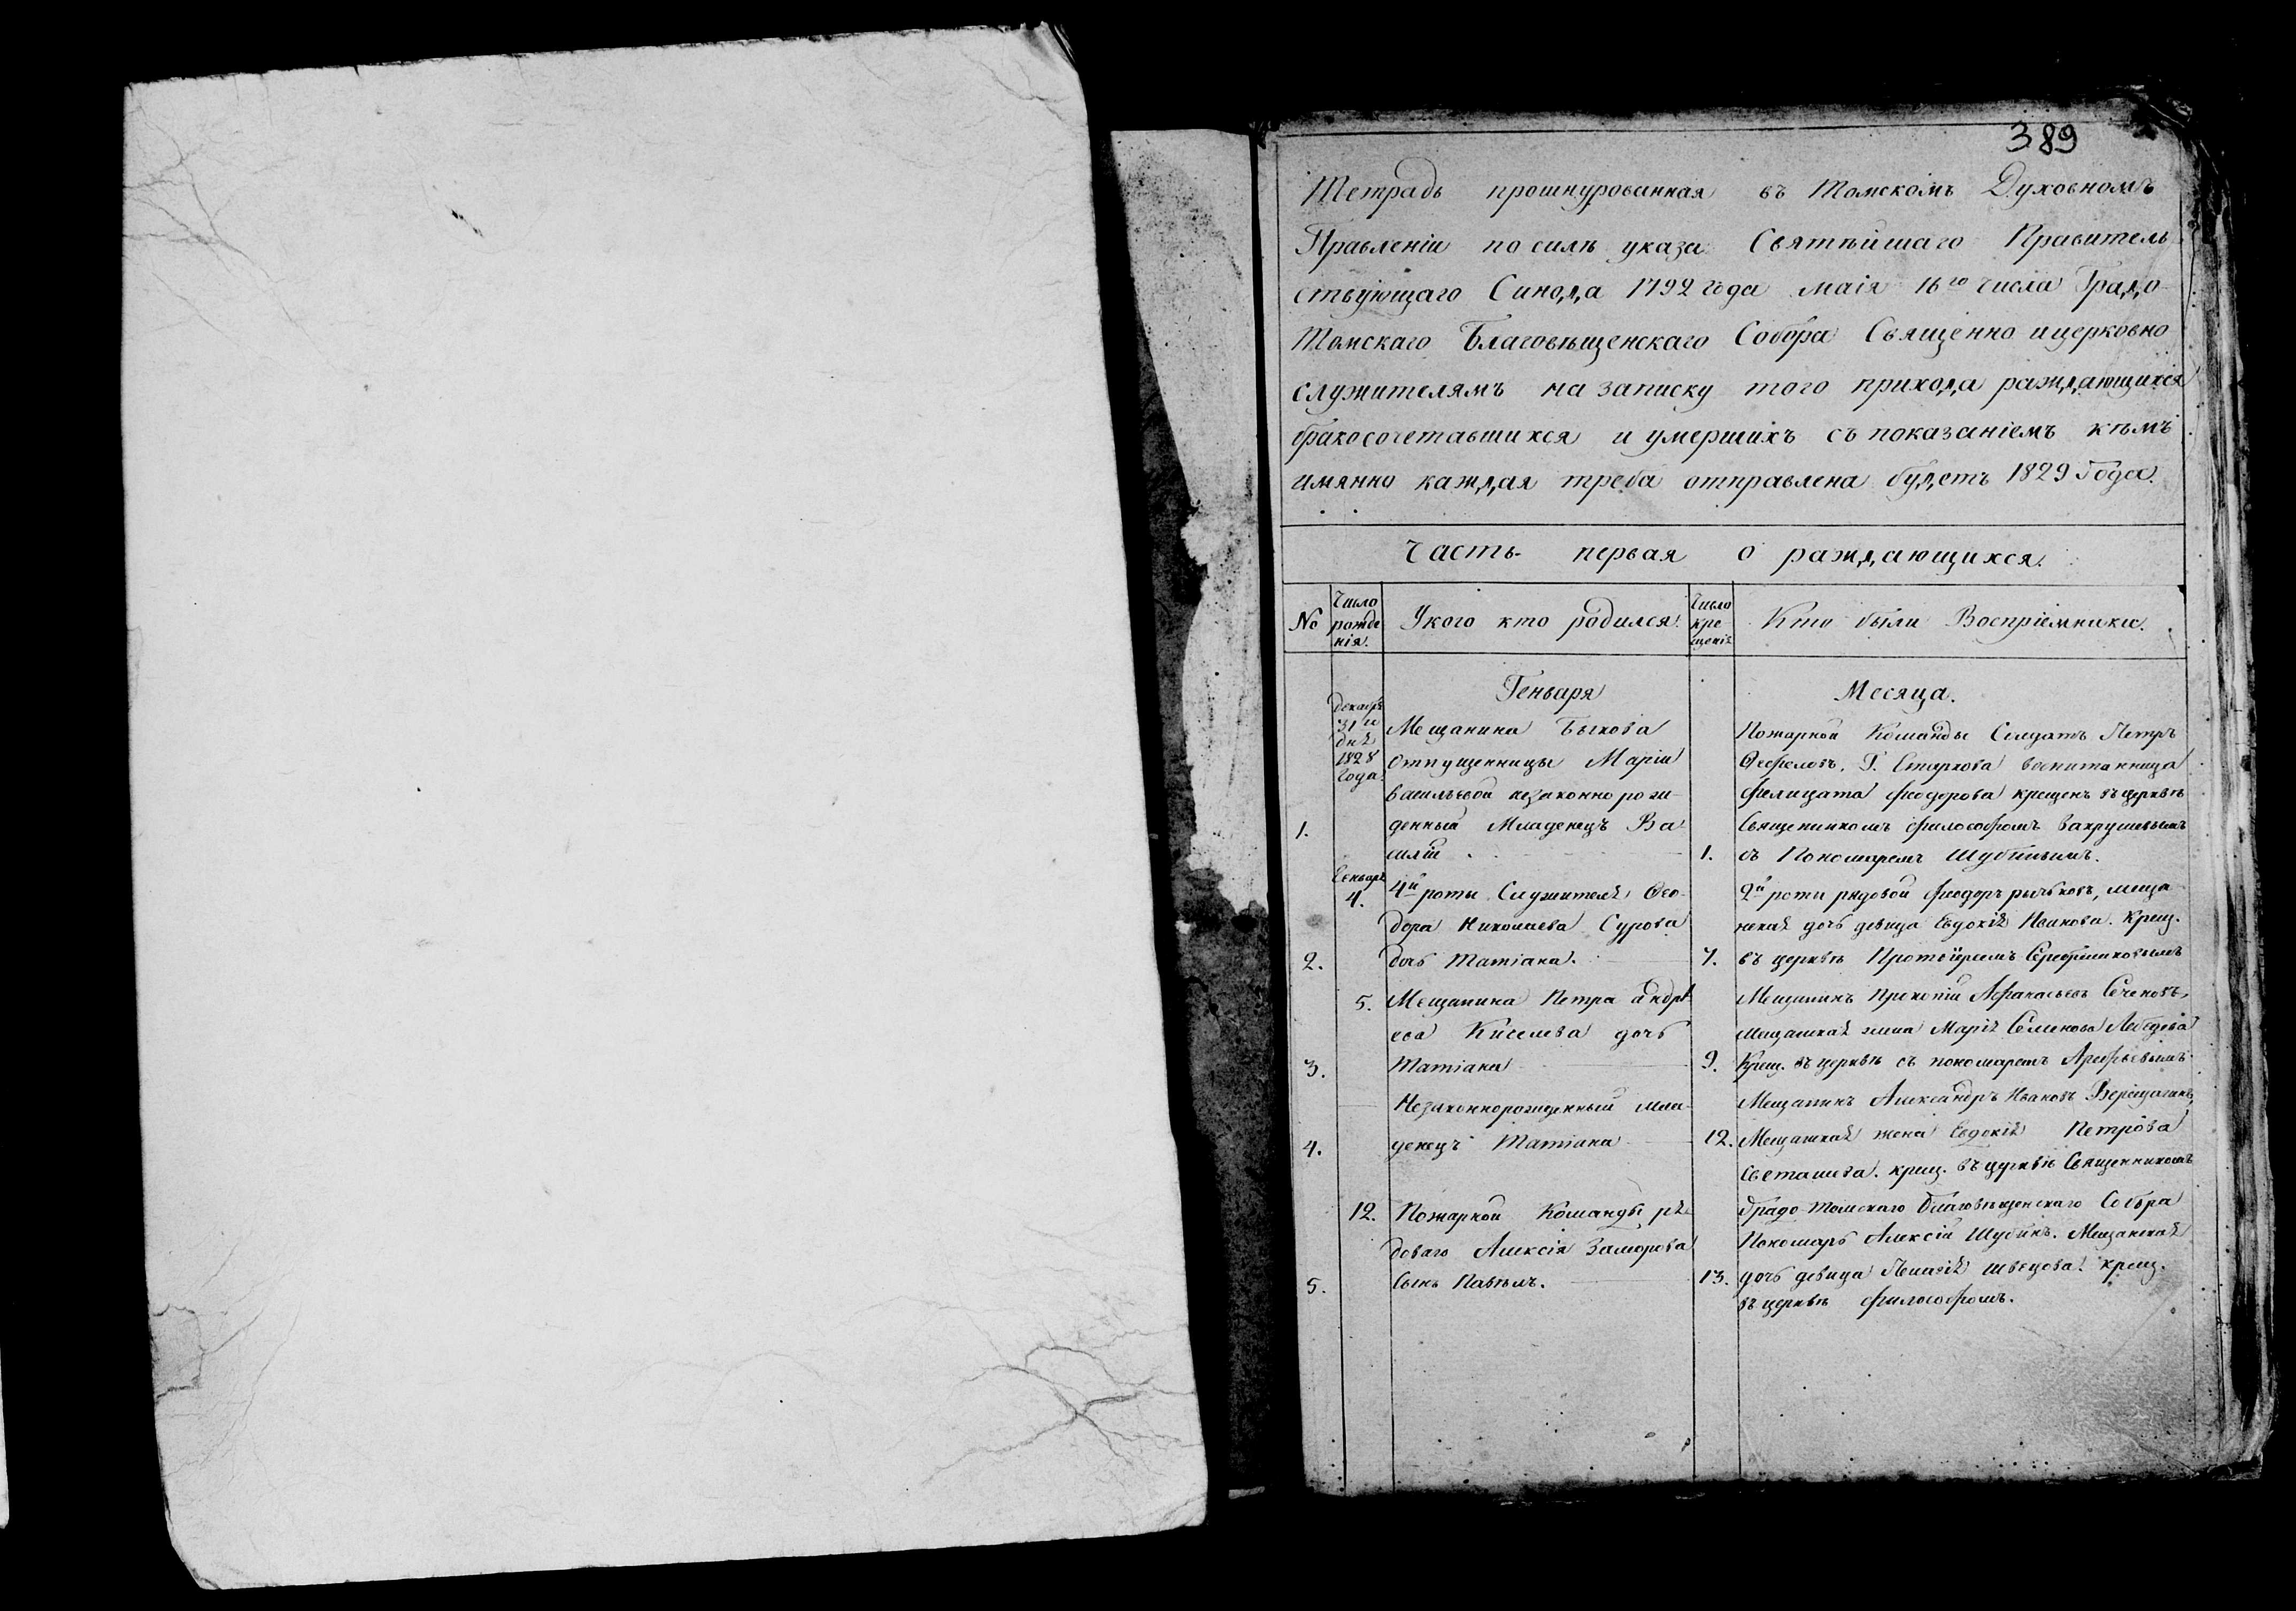 389
Тетрадь прошнурованная въ Томскомъ Духовномъ
Правленіи по силѣ указа Святѣйшаго Правитель
ствующаго Синода 1792 года маія 16го числа Градо
Томскаго Благовѣщенскаго Собора Священно ицерковно
служителямъ на записку того прихода раждающихся
бракосочетавшихся и умершихъ съ показаніемъ кѣмъ
имянно каждая треба отправлена будетъ 1829 Года.
Часть первая о раждающихся.
№
Число рожде нія.
Укого кто родился.
Число кре щенія
Кто были Воспріемники.
Генваря
Месяца.
Декабря 31го дня 1828 Года
Мещанина Быкова
отпущенницы Маріи
васильевой незаконно рож-
1. денный Младенецъ Ва
силій 1.
Пожарной Команды Солдатъ Петръ
Г. Старкова воспитанница
Филицата Феодорова крещенъ въ церквѣ
Священникомъ Философомъ Вахрушевымъ
съ Пономаремъ Шубинымъ.
Генваря 4.
4й роты Служителя Фео-
дора Николаева Сурова
2. дочь Татіана. 7.
2й роты рядовой Феодоръ рычковъ, меща
нская дочь девица Евдокія Иванова. Крещ.
въ церквѣ Протоіереемъ
5. Мещанина Петра андрѣ
ева Киселева дочь
3. Татіана 9.
Мещанинъ Прокопій Афанасьевъ
мещанская жена Марія Семенова Лебедева
Крещ. въ церквѣ съ пономаремъ Арефьевымъ
Незаконнорожденный мла-
4. денецъ Татіана 12.
Мещанинъ Александръ Ивановъ Верещагинъ,
Мещанская жена Евдокія Петрова
крещ. въ церквѣ Священникомъ
12. Пожарной Команды ря
доваго Алексія Заморова
5. Сынъ Павелъ. 13.
Градо-Томскаго Благовѣщенскаго Собора
Пономарь Алексій Шубинъ. Мещанская
дочь девица Пелагія швецова. крещ.
въ церквѣ Философомъ.